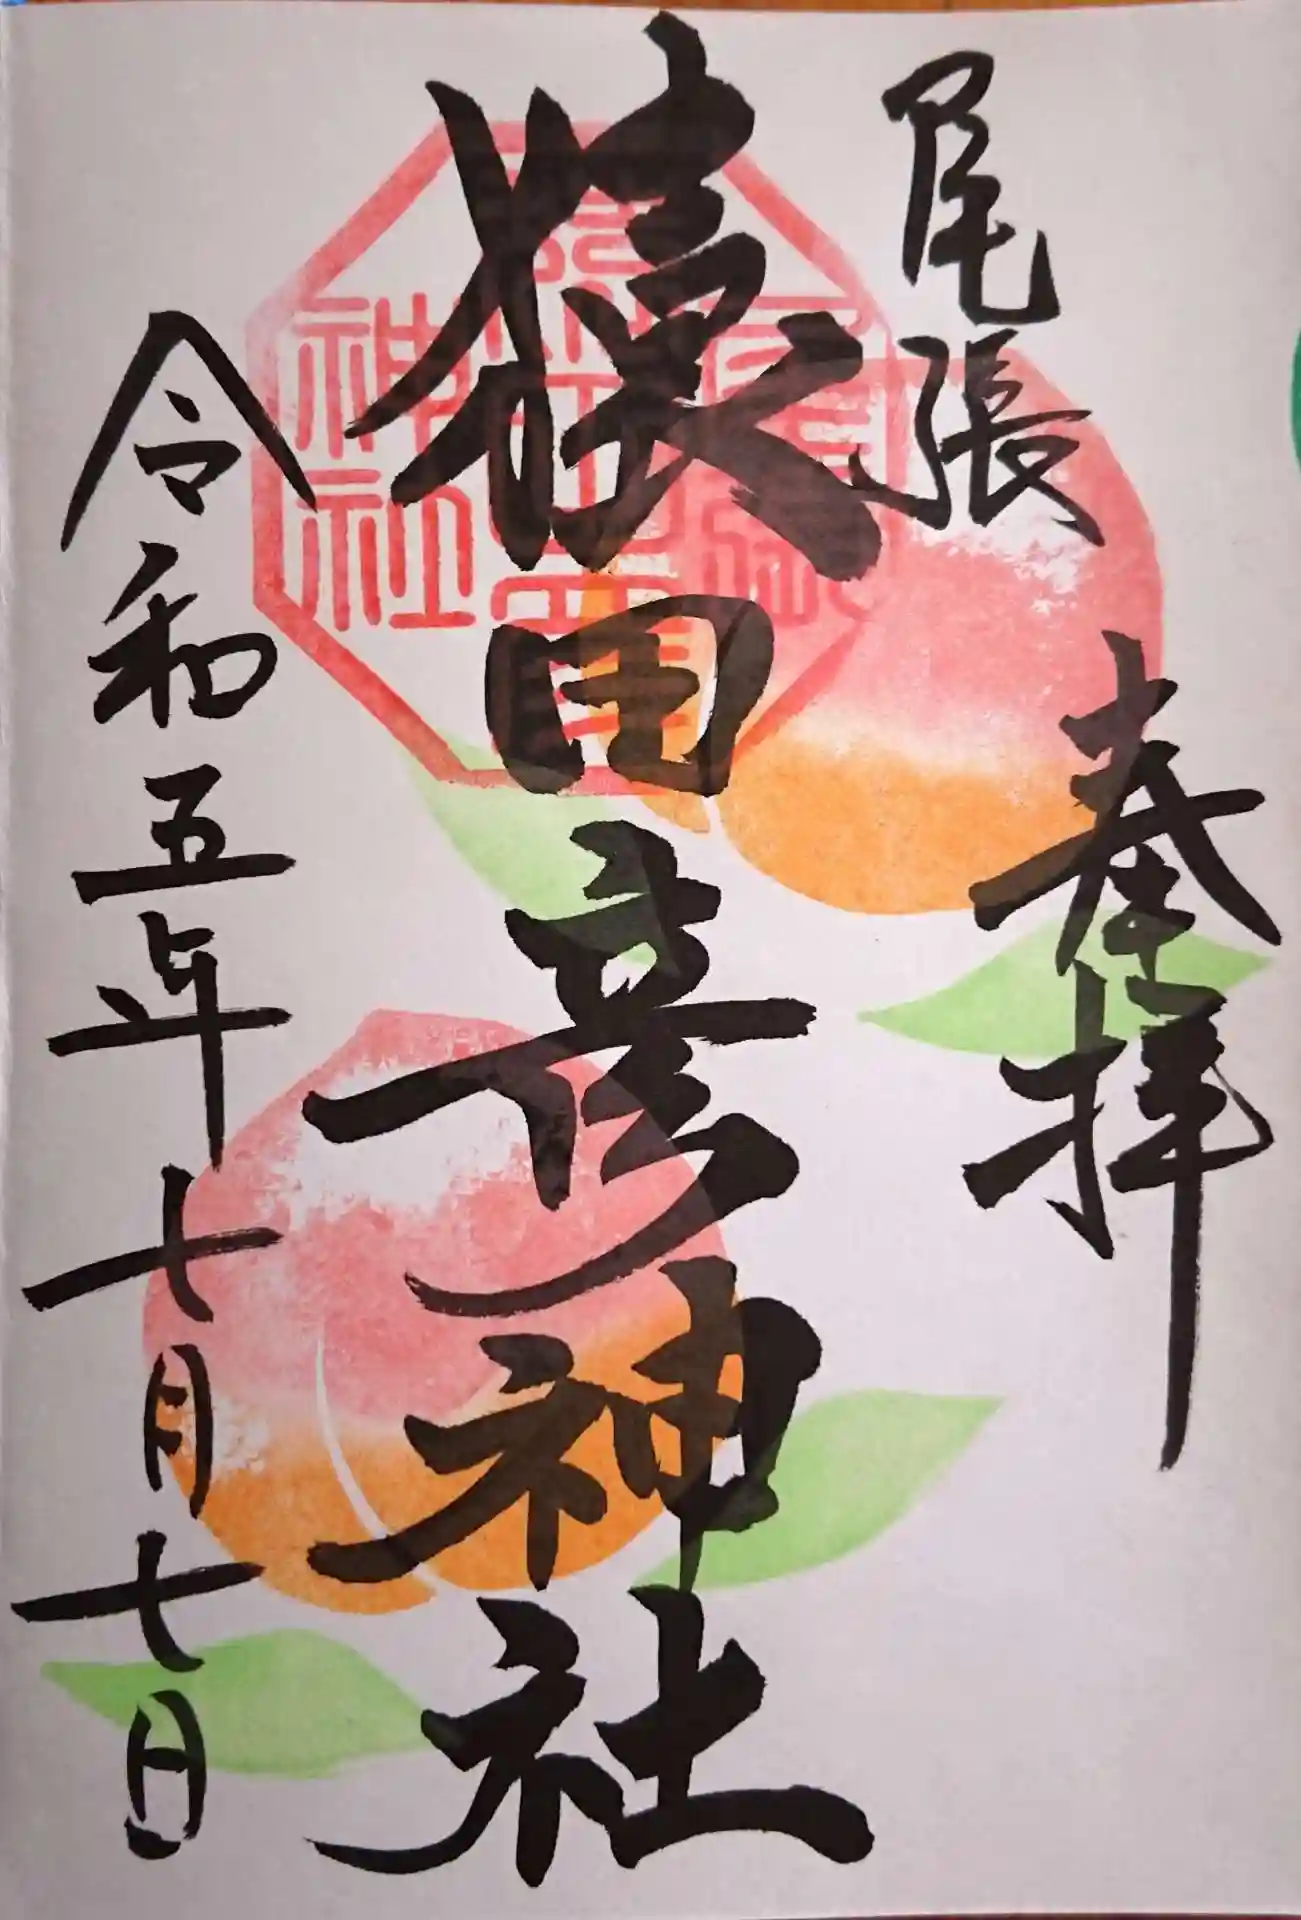 奉拝
尾張
猿田彦神社
令和五年七月七日
尾張
神社